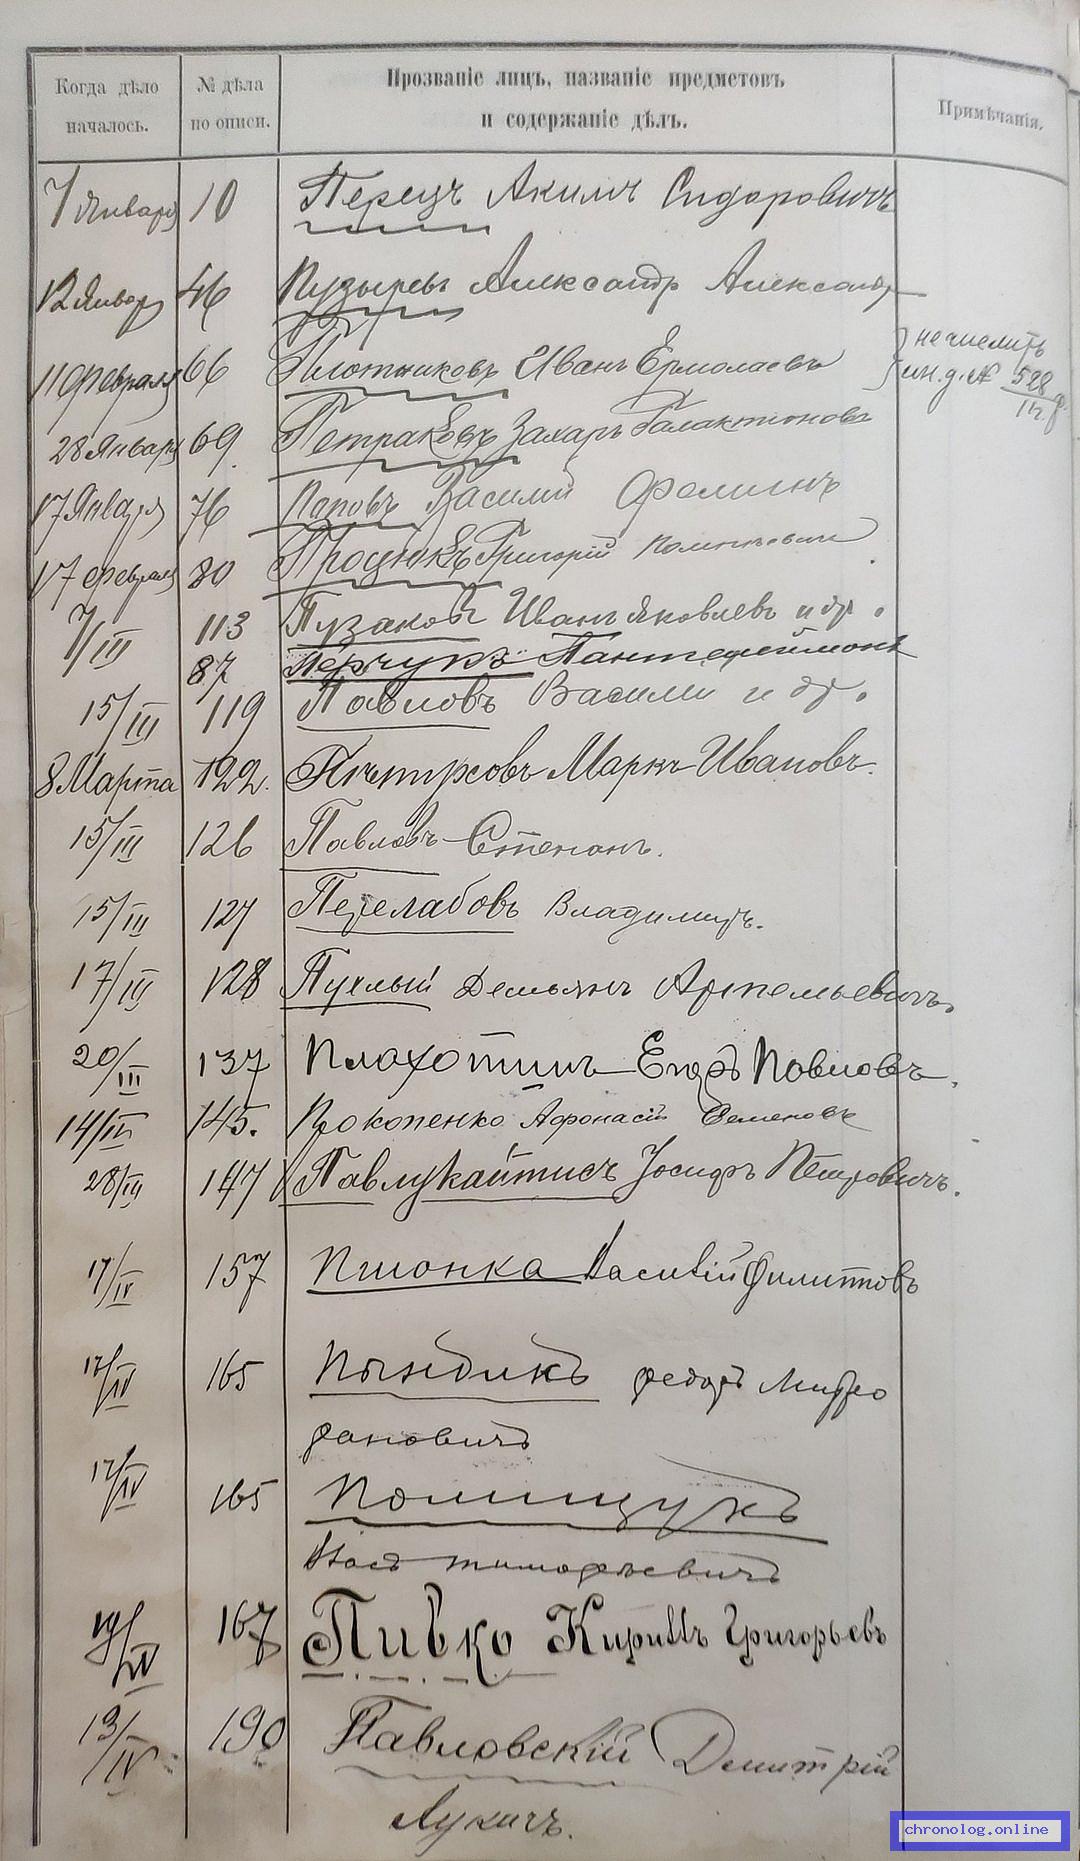 Когда дѣло
началось.
№ дѣла
по описи.
Прозваніе лицъ, названіе предметовъ
и содержаніе дѣлъ.
Примѣчанія.
7 Января 10 Перецъ Акимъ Сидоровичъ
12 Января 46 Пузыревъ Александр Александр
11 февраля 66 Плотниковъ Иванъ Ермолаевъ
28 Января 69. Петраковъ Захаръ Галактіоновъ
17 Января 76 Поповъ Василій
17 февраля 80 Процикъ Григорій
7/III 113 Пузаковъ Иванъ Яковлевъ и др.
87 Перчукъ Пантефеймонъ
15/III 119 Павловъ Васили и др.
8 Марта 122. Маркъ Ивановъ.
15/III 126 Павловъ Степанъ.
15/III 127 Перелабовъ Владимиръ.
17/III 128 Пухлый Демьянъ Артемьевичъ.
20/III 137 Плахотинъ Егоръ Павловъ.
14/III 145. Прокопенко Афонасій Семеновъ
28/III 147 Павлукайтисъ Іосифъ Петровичъ.
17/IV 157 Пшонка Василій Филипповъ
17/IV 165 Пындикъ федоръ Митро
фановичъ
17/IV 165 Полищукъ
тимофѣевичъ
19/IV 167 Пивко Кирилъ Григорьевъ
13/IV 190 Павловскій Демитрій
Лукичъ.
528
chronolog.online